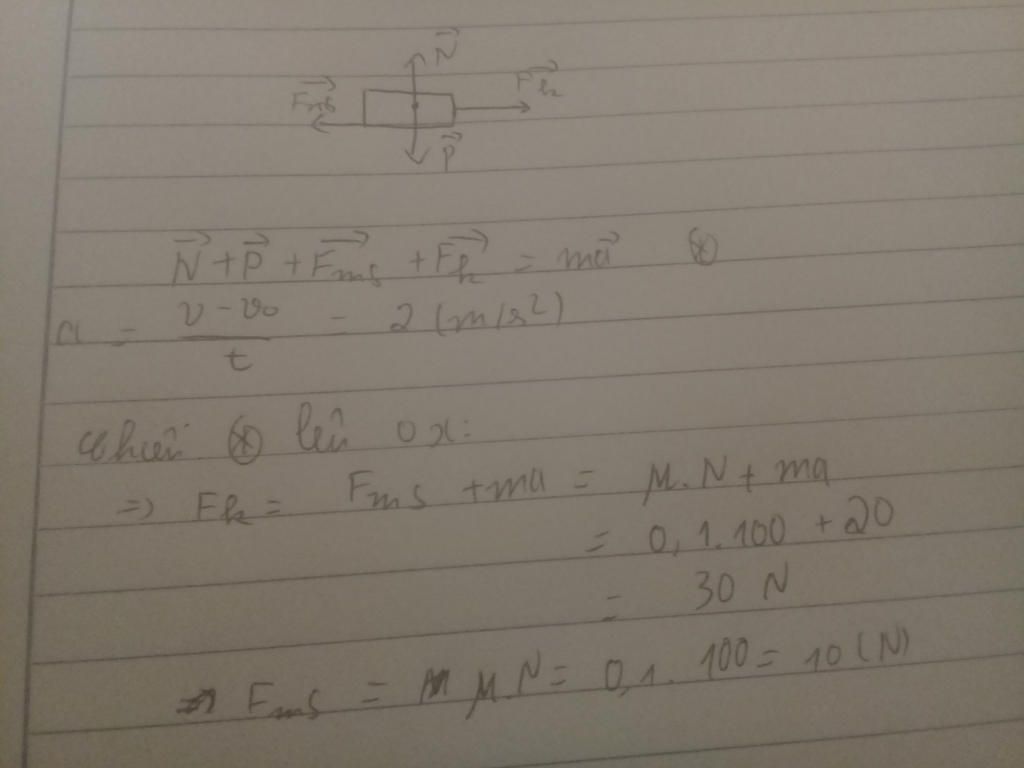 N⃗
F⃗ms F⃗k
P⃗
N⃗ + P⃗ + F⃗ms + F⃗k = ma⃗ ⊛
a = (v - v₀)/t = 2 (m/s²)
chiếu ⊛ lên ox:
=> Fk = Fms + ma = μ.N + ma
= 0,1.100 + 20
= 30 N
=> Fms = μ.N = 0,1.100 = 10 (N)